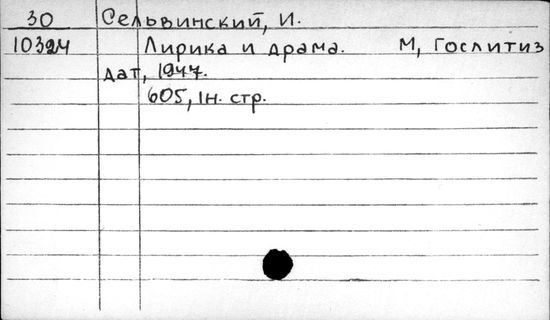 30 Сельвинский, И.
10324 Лирика и драма. М, Гослитиз
дат, 1947.
605, 1н. стр.